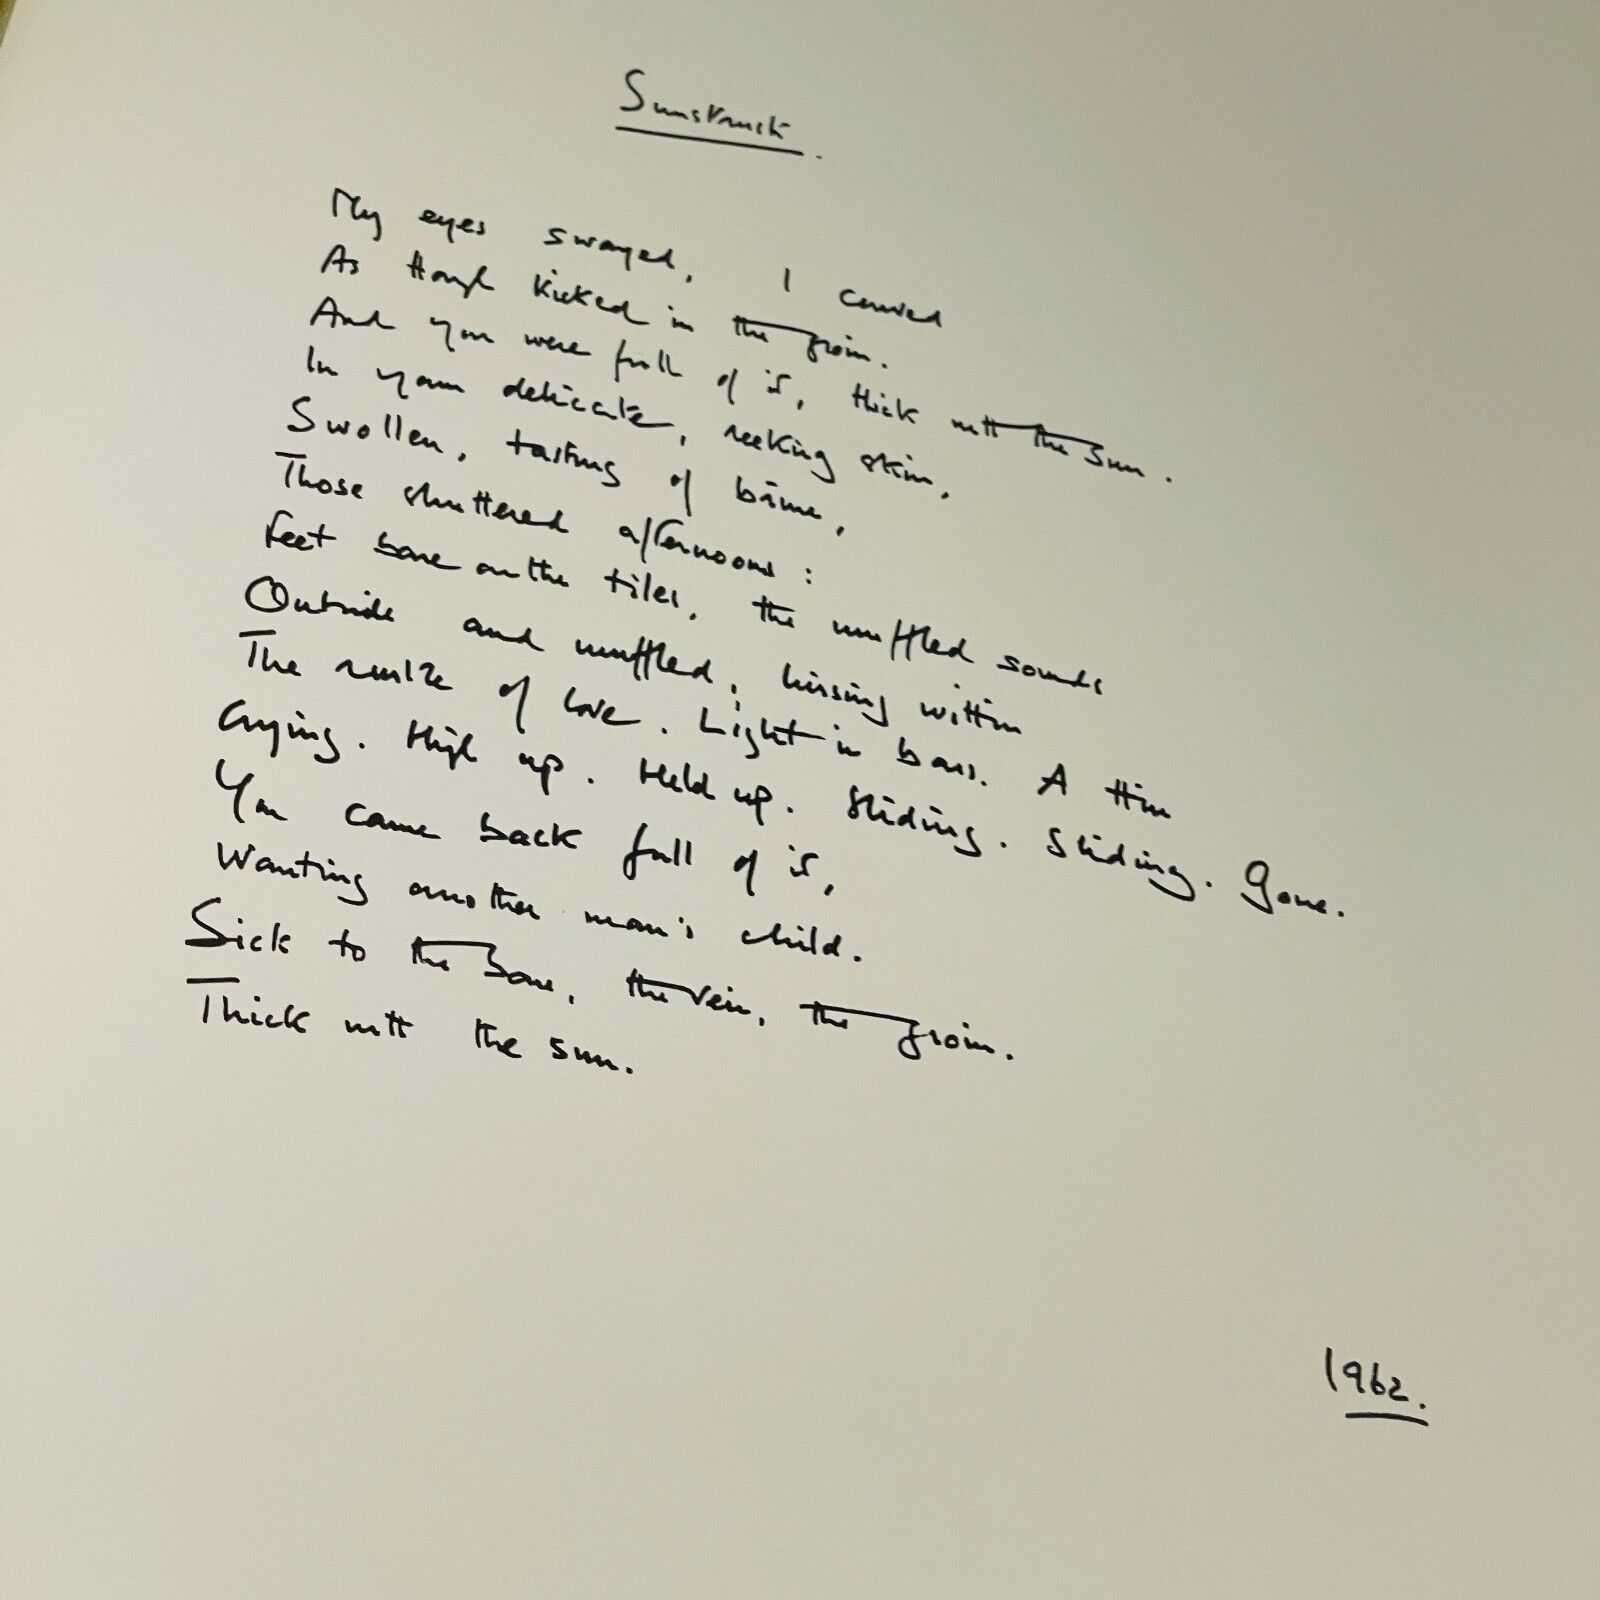 Sunstruck.
My eyes swayed, I curved
As though kicked in the groin.
And you were full of it, thick with the sun.
In your delicate, reeking skin,
Swollen, tasting of brine,
Those shuttered afternoons:
Feet bare on the tiles, the muffled sounds
Outside and muffled, hissing within
The rustle of love. Light in bars. A thin
Crying. High up. Held up. Sliding. Sliding. Gone.
You came back full of it,
Wanting another man's child.
Sick to the bone, the vein, the groin.
Thick with the sun.
1962.